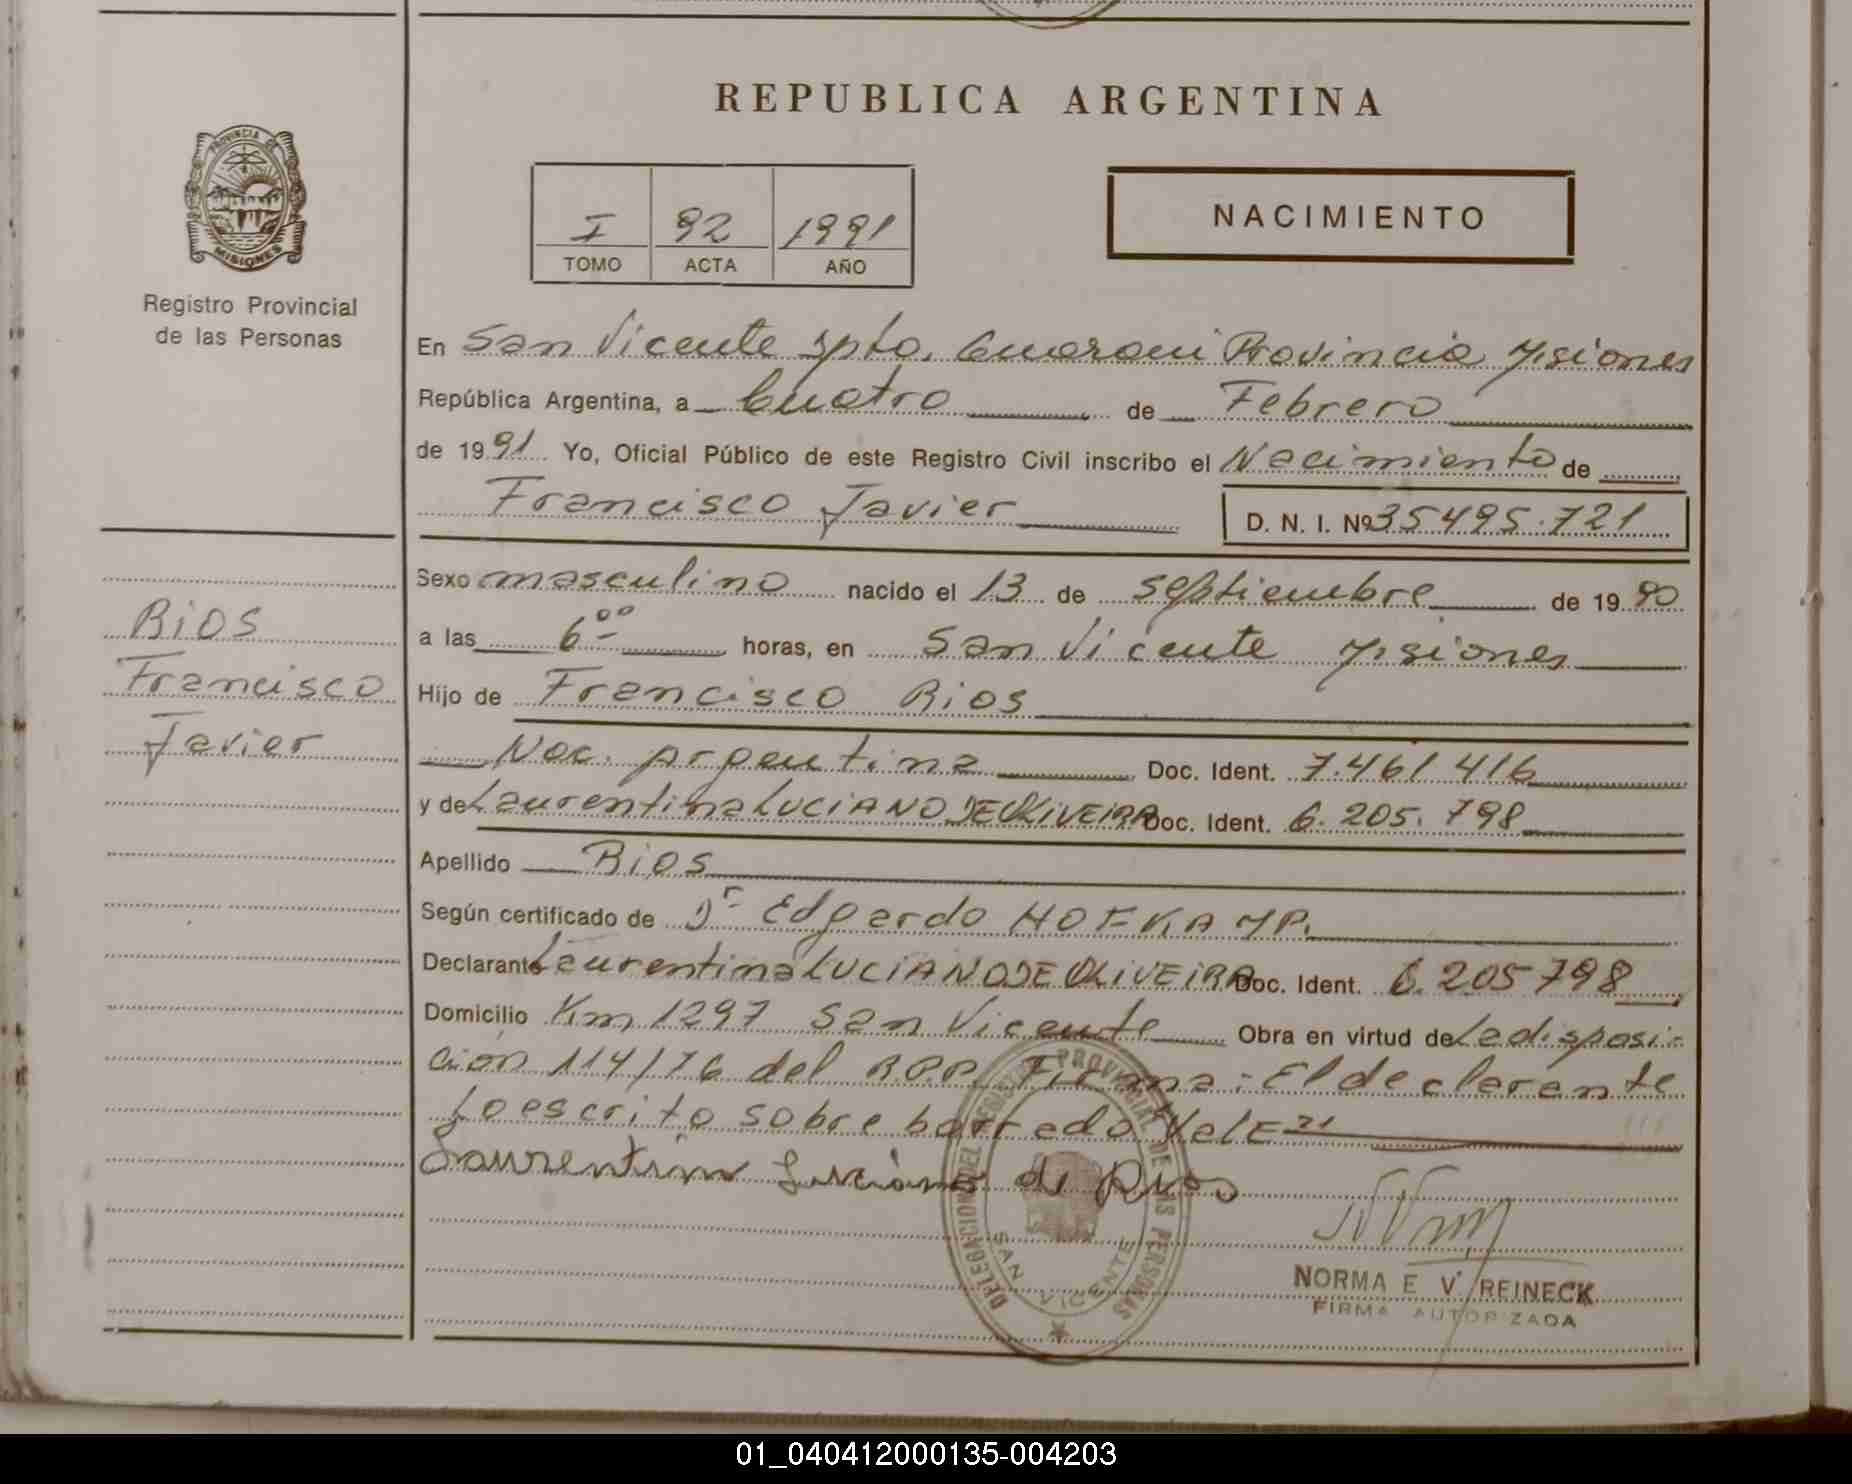 REPUBLICA ARGENTINA
PROVINCIA DE
MISIONES
Registro Provincial
de las Personas
I 92 1991
TOMO ACTA AÑO
NACIMIENTO
En San Vicente Dpto. Guarani Provincia Misiones
República Argentina, a Cuatro de Febrero
de 1991 Yo, Oficial Público de este Registro Civil inscribo el Nacimiento de
Francisco Javier D. N. I. Nº 35495.721
Sexo masculino nacido el 13 de Septiembre de 1990
a las 6 00 horas, en San Vicente Misiones
Hijo de Francisco Rios
Nac. Argentina Doc. Ident. 7.461 416
y de Laurentina LUCIANO DE OLIVEIRA Doc. Ident. 6.205.798
Apellido Rios
Según certificado de Dr Edgardo HOFKA MP.
Declarante Laurentina LUCIANO DE OLIVEIRA Doc. Ident. 6.205 798
Domicilio Km 1297 San Vicente Obra en virtud de La disposi-
cion 114/76 del R.P.P. Firma: El declarante
Lo escrito sobre borrado Vale
Laurentin Luciano di Rios
RIOS
Francisco
Javier
DELEGACION DEL REGISTRO PROVINCIAL DE LAS PERSONAS
SAN VICENTE
NORMA E. V. REINECK
FIRMA AUTORIZADA
01_040412000135-004203